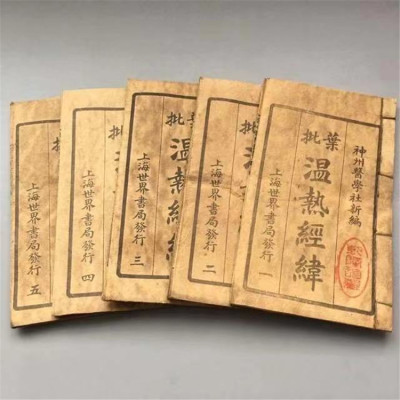 神州醫學社新編
葉批
温熱經緯
上海世界書局發行
一
批
温
上海世界書局發行
二
批
温熱經緯
上海世界書局發行
三
批
上海世界書局發行
四
批
上海世界書局發行
五